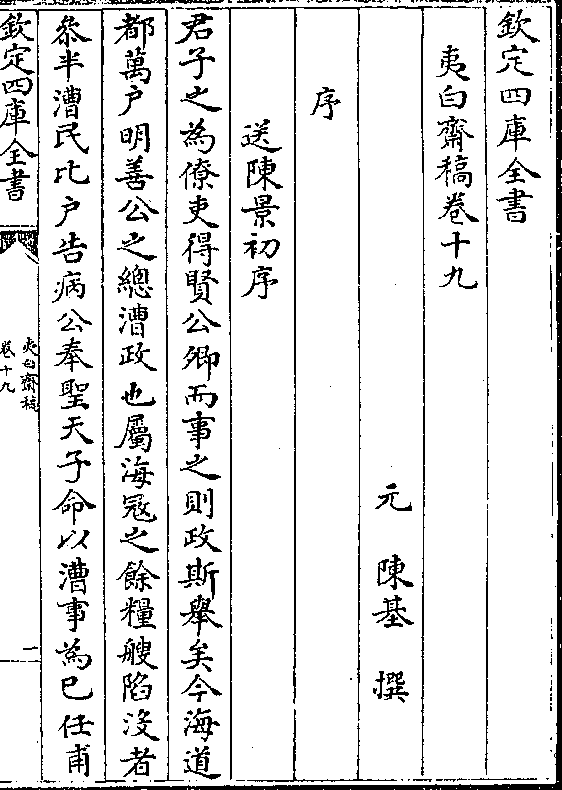 欽定四庫全書
夷白齋稿卷十九
元 陳基 撰
序
送陳景初序
君子之為僚吏得賢公卿而事之則政斯舉矣今海道
都萬户明善公之總漕政也屬海冦之餘糧艘陷沒者
叅半漕民比户告病公奉聖天子命以漕事為已任甫
欽定四庫全書
夷白齋稿
卷十九
一